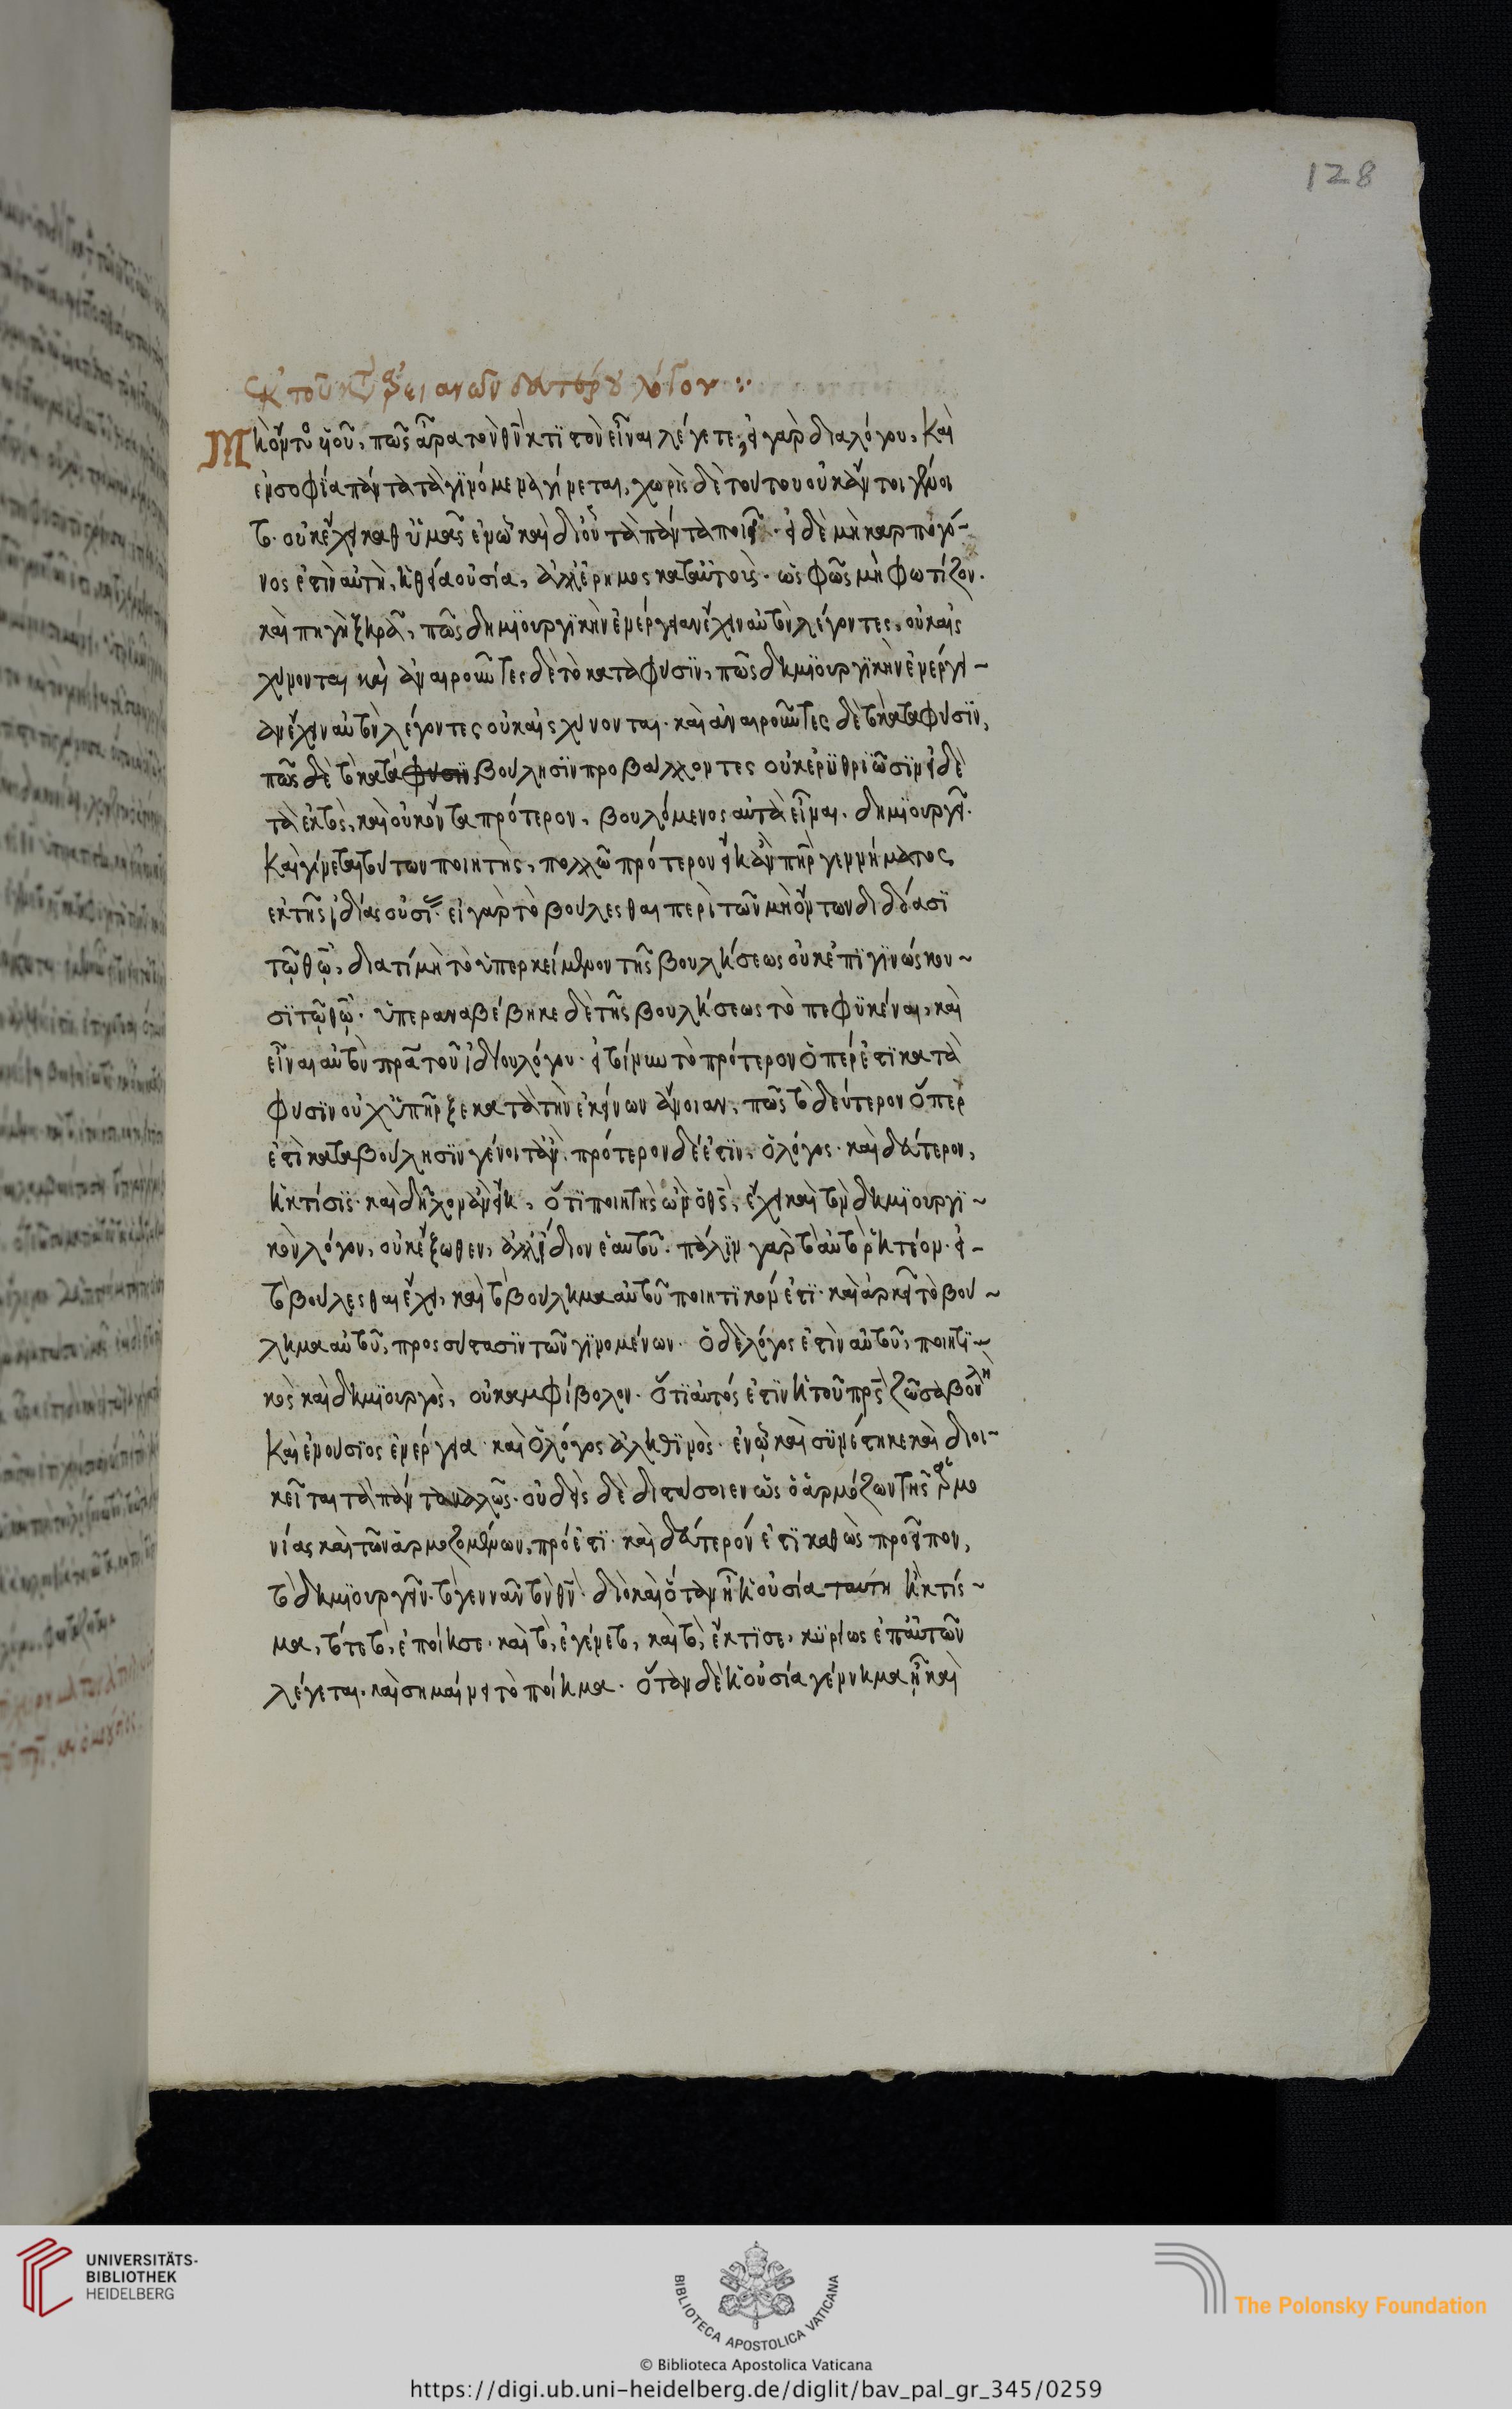 128
ἐκ τοῦ κατὰ ἀρειανῶν δευτέρου λόγου :·
Μὴ ὄντος υἱοῦ, πῶς ἄρα τὸν θν κτίστην εἶναι λέγετε, εἰ γὰρ δια λόγου, καὶ
ἐν σοφία πάντα τὰ γινόμενα γίνεται, χωρὶς δὲ τούτου οὐκ ἄν τοι γένοι
το. οὐκ ἔχει καθ ὑμᾶς ἐν ὧ καὶ δι οὗ τὰ πάντα ποιεῖ. εἰ δὲ μὴ καρπογό-
νος ἐστὶν αὐτὴ, ἡ θεία οὐσία, ἀλλ' ἔρημος κατ αὐτοὺς. ὡς φῶς μὴ φωτίζον.
καὶ πηγὴ ξηρὰ, πῶς δημιουργικὴν ἐνέργειαν ἔχειν αὐτὸν λέγοντες, οὐκ αἰς
χύνονται καὶ ἀναιροῦντες δὲ τὸ κατὰ φύσιν, πῶς δημιουργικὴν ἐνέργει-
αν ἔχειν αὐτὸν λέγοντες οὐκ αἰσχύνονται. καὶ ἀναιροῦντες δὲ τὸ κατα φύσιν,
πῶς δὲ τὸ κατὰ φύσιν βούλησιν προβάλλοντες οὐκ ἐρυθριῶσιν εἰ δὲ
τὰ ἐκτὸς, καὶ οὐκ ὄντα πρότερον, βουλόμενος αὐτὰ εἶναι. δημιουργεῖ.
καὶ γίνεται τούτων ποιητὴς, πολλῶ πρότερον εἴη ἂν πηρ γεννήματος
ἐκ τῆς ἰδίας οὐσίας. εἰ γὰρ τὸ βούλεσθαι περὶ τῶν μὴ ὄντων διδόασι
τῷ θῷ, διατί μὴ τὸ ὑπερκείμενον τῆς βουλήσεως οὐκ ἐπιγινώσκου-
σι τῷ θῷ. ὑπεραναβέβηκε δὲ τῆς βουλήσεως τὸ πεφυκέναι, καὶ
εἶναι αὐτὸν πρα τοῦ ἰδίου λόγου. εἰ τοίνυν τὸ πρότερον ὅπέρ ἐστι κατὰ
φύσιν οὐχ ὑπῆρξε κατὰ τὴν ἐκείνων ἄνοιαν, πῶς τὸ δεύτερον ὅπερ
ἐστὶ κατα βούλησιν γένοιτ ἂν, πρότερον δέ ἐστιν, ὁ λόγος. καὶ δεύτερον,
ἡ κτίσις. καὶ δῆλον ἂν εἴη, ὅτι ποιητὴς ὢν ὁ θς, ἔχει καὶ τὸν δημιουργι-
κὸν λόγον, οὐκ ἔξωθεν, ἀλλ' ἴδιον ἑαυτοῦ. πάλιν γὰρ τὸ αὐτὸ ῥητέον. εἰ-
τὸ βούλεσθαι ἔχει, καὶ τὸ βούλημα αὐτοῦ ποιητικόν ἐστι. καὶ ἀρκεῖ τὸ βού-
λημα αὐτοῦ, προς σύστασιν τῶν γινομένων. ὁ δὲ λόγος ἐστὶν αὐτοῦ, ποιητι-
κὸς καὶ δημιουργὸς, οὐκ ἀμφίβολον. ὅτι αὐτός ἐστιν ἡ τοῦ πρς ζῶσα βουλὴ
καὶ ἐνούσιος ἐνέργεια. καὶ ὁ λόγος ἀληθινὸς. ἐν ὧ καὶ συνέστηκε καὶ διοι-
κεῖται τὰ πάντα καλῶς. οὐδεὶς δὲ διστάσοιεν ὡς ὁ ἁρμόζων τῆς ἁρμο
νίας καὶ τῶν ἁρμοζομένων, πρό ἐστι. καὶ δεύτερόν ἐστι καθὼς προεῖπον,
τὸ δημιουργεῖν. τὸ γεννᾶν τὸν θν. διὸ καὶ ὅταν ἦ ἡ οὐσία ταύτη ἡ κτίσ-
μα, τότε τὸ, ἐποίησε. καὶ τὸ, ἐγένετο, καὶ τὸ, ἔκτισε, κυρίως ἐπ αὐτῶν
λέγεται. καὶ σημαίνει τὸ ποίημα. ὅταν δὲ ἡ οὐσία γέννημα ἦ καὶ
UNIVERSITÄTS-
BIBLIOTHEK
HEIDELBERG
BIBLIOTECA APOSTOLICA VATICANA
The Polonsky Foundation
© Biblioteca Apostolica Vaticana
https://digi.ub.uni-heidelberg.de/diglit/bav_pal_gr_345/0259